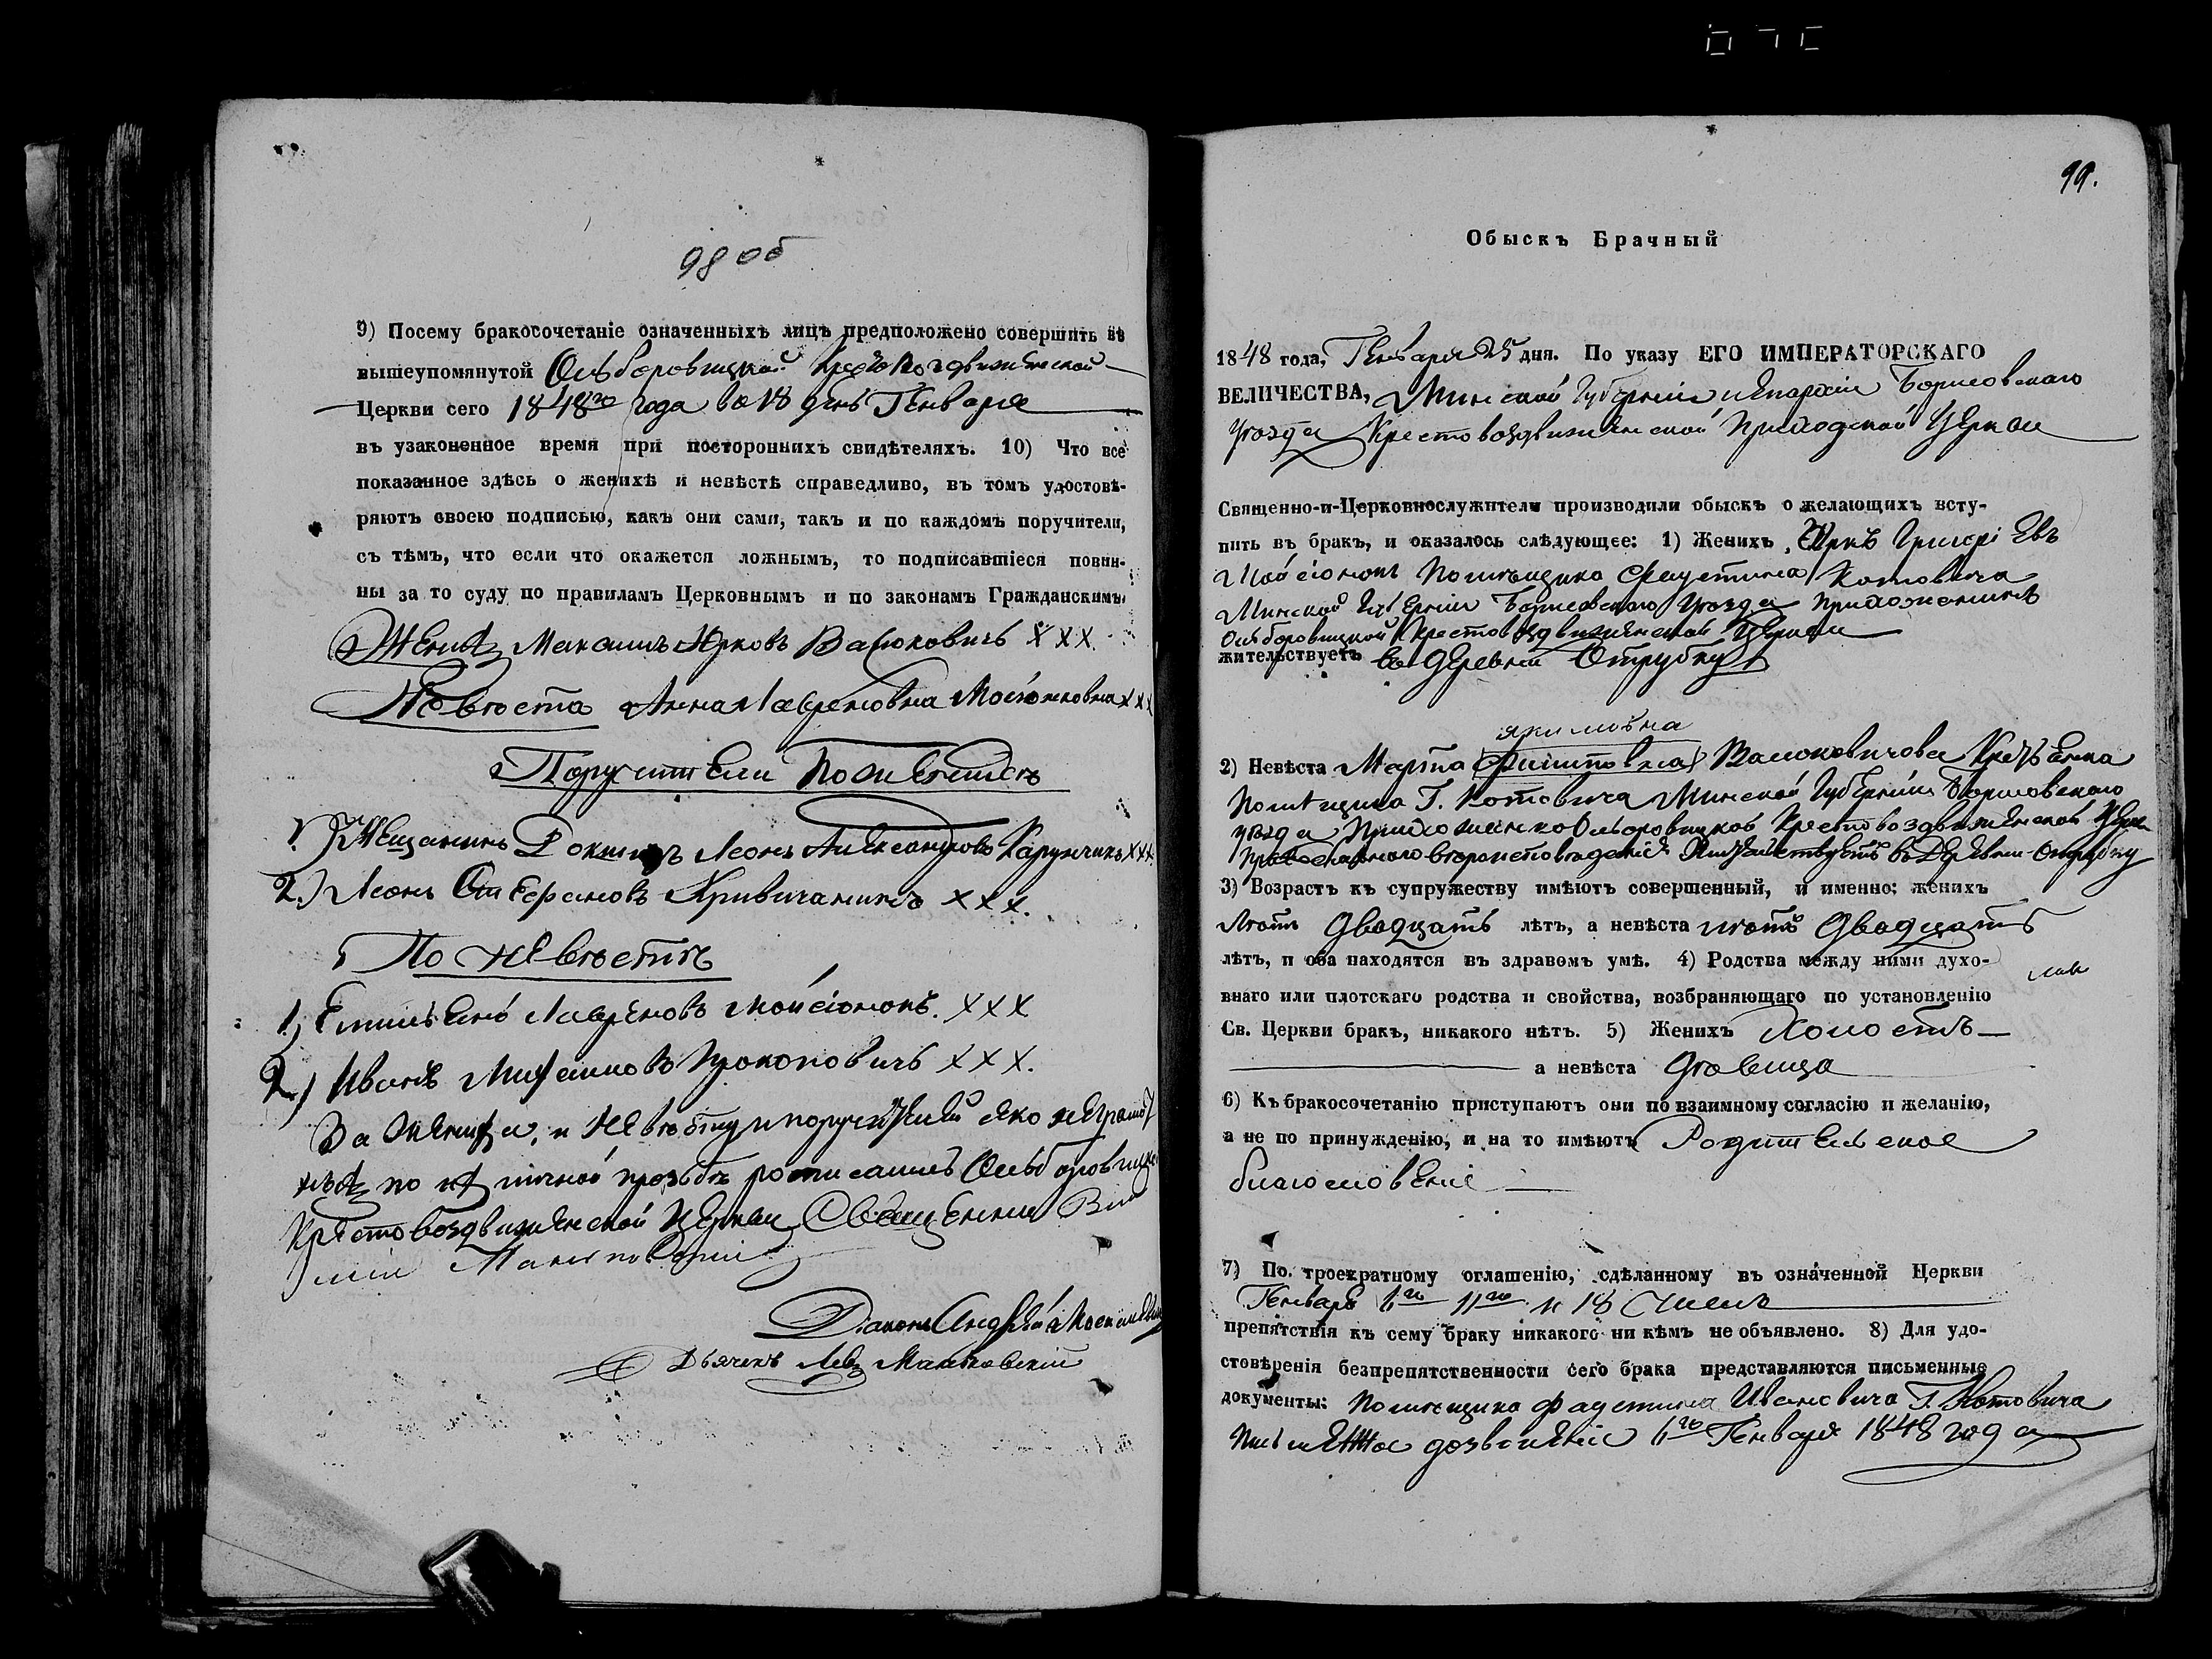 98 об
9) Посему бракосочетаніе означенныхъ лицъ предположено совершить въ
вышеупомянутой Ольборовицкой Кресто воздвиженской
Церкви сего 1848го года во 18 день Генваря
въ узаконенное время при постороннихъ свидѣтеляхъ. 10) Что все
показанное здѣсь о женихѣ и невѣстѣ справедливо, въ томъ удостовѣ-
ряютъ своею подписью, какъ они сами, такъ и по каждомъ поручители,
съ тѣмъ, что если что окажется ложнымъ, то подписавшіеся повин-
ны за то суду по правиламъ Церковнымъ и по законамъ Гражданскимъ
Женихъ Максимъ Юрковъ Валюковичъ ХХХ.
Невѣста Анна Лавреновна Мойсіонковна ххх
Поручители По Женихѣ
1.) Мещанинъ Леонъ Александровъ Карунчикъ ххх.
2.) Леонъ Стефановъ Кривичанинъ ххх.
По невѣстѣ
1, Емильянъ Лавреновъ Мойсіонокъ. ХХХ
2,) Иванъ Михайловъ Прокоповичъ ХХХ.
За Жениха, и Невѣсту и поручителей яко неграмот
ныхъ по ихъ личной прозьбѣ росписался Ольборовицко
Крестовоздвиженской Церкви Священникъ
Діаконъ Андрей
Дьячекъ Левъ Маньковскій
99.
Обыскъ Брачный
1848 года, Генваря 25 дня. По указу ЕГО ИМПЕРАТОРСКАГО
ВЕЛИЧЕСТВА, Минской Губерніи и Епархіи Борисовскаго
уѣзда Крестовоздвиженской Приходской Церкви
Священно-и-Церковнослужители производили обыскъ о желающихъ всту-
пить въ бракъ, и оказалось слѣдующее: 1) Женихъ, Юркъ Григоріевъ
Мойсіонокъ Помѣщика Фаустина Котовича
Минской Губерніи Борисовскаго Уѣзда Прихожанинъ
Ольборовицкой Крестовоздвиженской Церкви
жительствуетъ въ деревни Отрубку
Якимовна
2) Невѣста Марта Филиповна Валюковичова Крестьянка
Помѣщика Г. Котовича Минской Губерніи Борисовскаго
уѣзда Прихожанка Ольборовицкой Крестовоздвиженской Церк
Православнаго вѣроисповѣданія Жительствуетъ въ Деревни Отрубку
3) Возрастъ къ супружеству имѣютъ совершенный, и именно: женихъ
лѣтъ двадцать лѣтъ, а невѣста лѣтъ двадцать
лѣтъ, и оба находятся въ здравомъ умѣ. 4) Родства между ними духо-
внаго или плотскаго родства и свойства, возбраняющаго по установленію
Св. Церкви бракъ, никакого нѣтъ. 5) Женихъ Холостъ
а невѣста дѣвица
6) Къ бракосочетанію приступаютъ они по взаимному согласію и желанію,
а не по принужденію, и на то имѣютъ Родительское
благословеніе
7) По троекратному оглашенію, сдѣланному въ означенной Церкви
Генваря 6го 11го и 18 Чиселъ
препятствія къ сему браку никакого ни кѣмъ не объявлено. 8) Для удо-
стовѣренія безпрепятственности сего брака представляются письменные
документы: Помѣщика Фаустина Ивановича Г. Котовича
Письменное дозволеніе 6го Генваря 1848 года